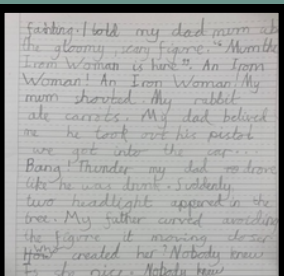 fainting. I told my dad mum ab
the gloomy, scary figure. "Mum the
Iron Woman is here". An Iron
Woman! An Iron Woman My
mum shouted. My rabbit
ate carrots. My dad belived
me he took out his pistol
we got into the car...
Bang! Thunder my dad drove
like he was drunk. Suddenly
two headlight appeared in the
tree. My father curved avoiding
the figure it moving closer
How created her? Nobody knew
she nice. Nobody knew